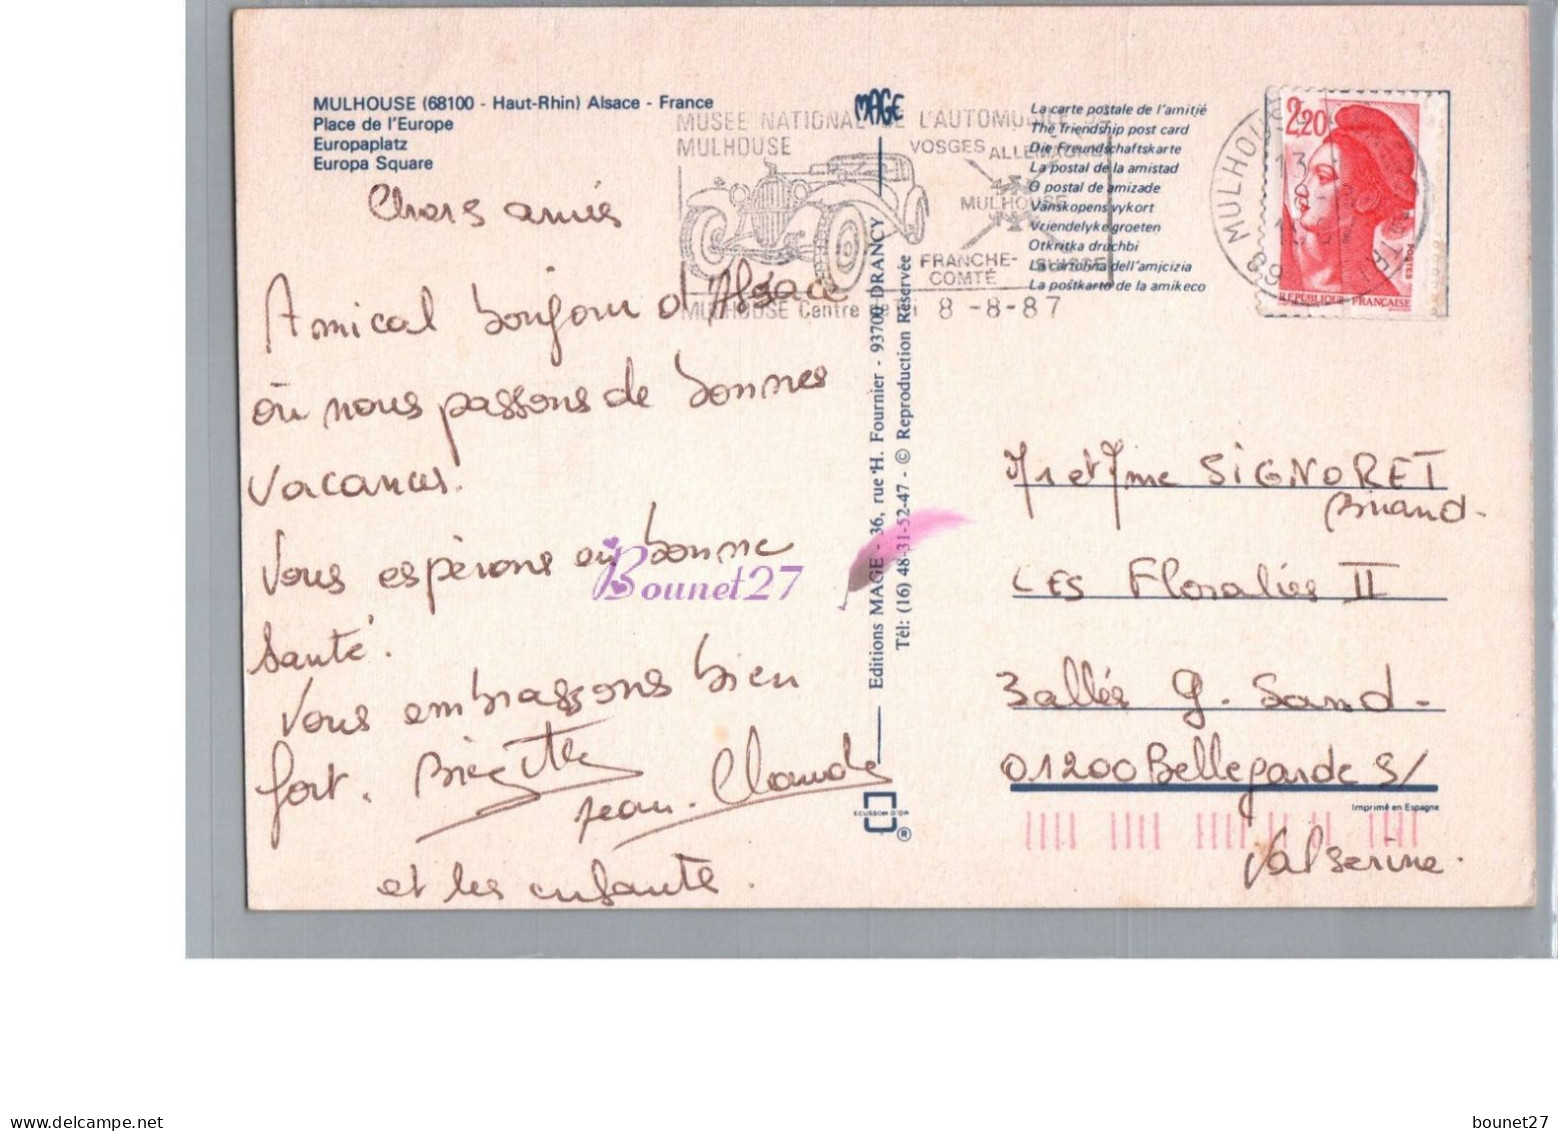 MULHOUSE (68100 - Haut-Rhin) Alsace - France
Place de l'Europe
Europaplatz
Europa Square
Chers amis
Amical bonjour d'Alsace
où nous passons de bonnes
vacances.
Vous espérons en bonne
santé.
Vous embrassons bien
fort. Brigitte
Jean-Claude
et les enfants.
MAGE
MUSEE NATIONAL DE L'AUTOMOBILE DE
MULHOUSE
VOSGES ALLEMAGNE
MULHOUSE
FRANCHE-COMTÉ SUISSE
MULHOUSE Centre de Tri 8-8-87
Editions MAGE - 36, rue H. Fournier - 93700 DRANCY
Tél: (16) 48-31-52-47 - © Reproduction Réservée
ECUSSON D'OR
®
La carte postale de l'amitjé
The friendship post card
Die Freundschaftskarte
La postal de la amistad
O postal de amizade
Vanskopens vykort
Vriendelyke groeten
Otkritka druchbi
La cartolina dell'amjcizia
La postkarto de la amikeco
MULHOUSE
13
68
2,20
POSTES
REPUBLIQUE FRANÇAISE
Mr et Mme SIGNORET
Briand.
LES Floralies II
3 allées G. Sand -
01200 Bellegarde S/
Valserine.
Imprimé en Espagne
Bounet27
delcampe.net
bounet27